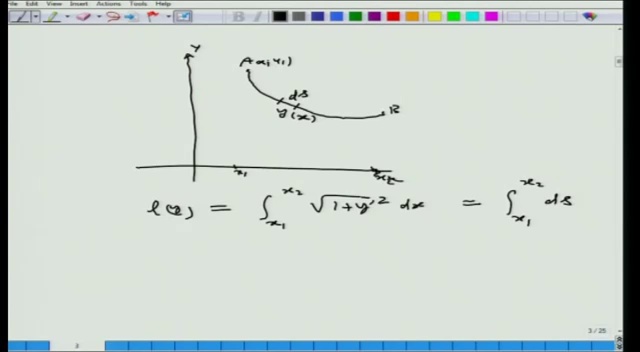 Edit View Insert Actions Tools Help
Y
A(x, y₁)
ds
y(x)
B
x₁
l(y) = ∫_{x₁}^{x₂} √(1+y'²) dx = ∫_{x₁}^{x₂} ds
3 / 25
3